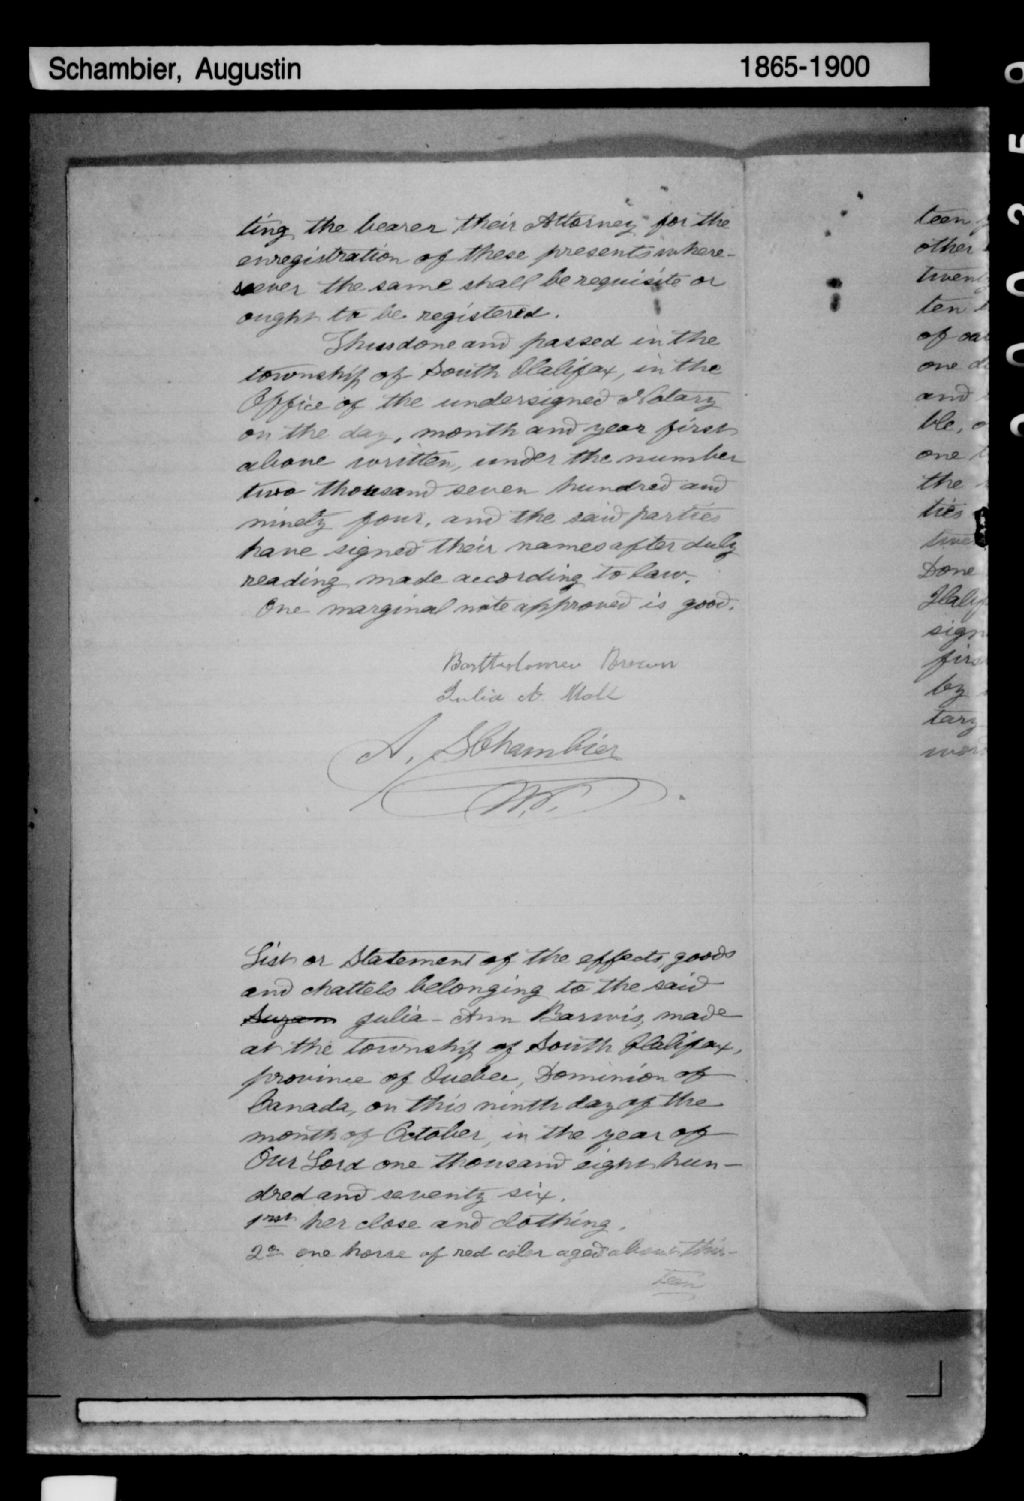 Schambier, Augustin 1865-1900
ting the bearer their Attorney for the
enregistration of these presents where-
soever the same shall be requisite or
ought to be registered.
Thus done and passed in the
township of South Halifax, in the
Office of the undersigned Notary
on the day, month and year first
above written, under the number
two thousand seven hundred and
ninety four, and the said parties
have signed their names after duly
reading made according to law.
One marginal note approved is good.
Bartholomew Brown
Julia A
A. SChambier
N.P.
List or Statement of the effects goods
and chattels belonging to the said
Suzan julia-Ann Barwis, made
at the township of South Halifax,
province of Quebec, Dominion of
Canada, on this ninth day of the
month of October, in the year of
Our Lord one thousand eight hun-
dred and seventy six.
1rst her close and clothing.
2o one horse of red color aged about thir-
teen
teen
other
twenty
ten
of oat
one
and
ble,
one
the
ties
Done
Halif
sign
firs
by
tary